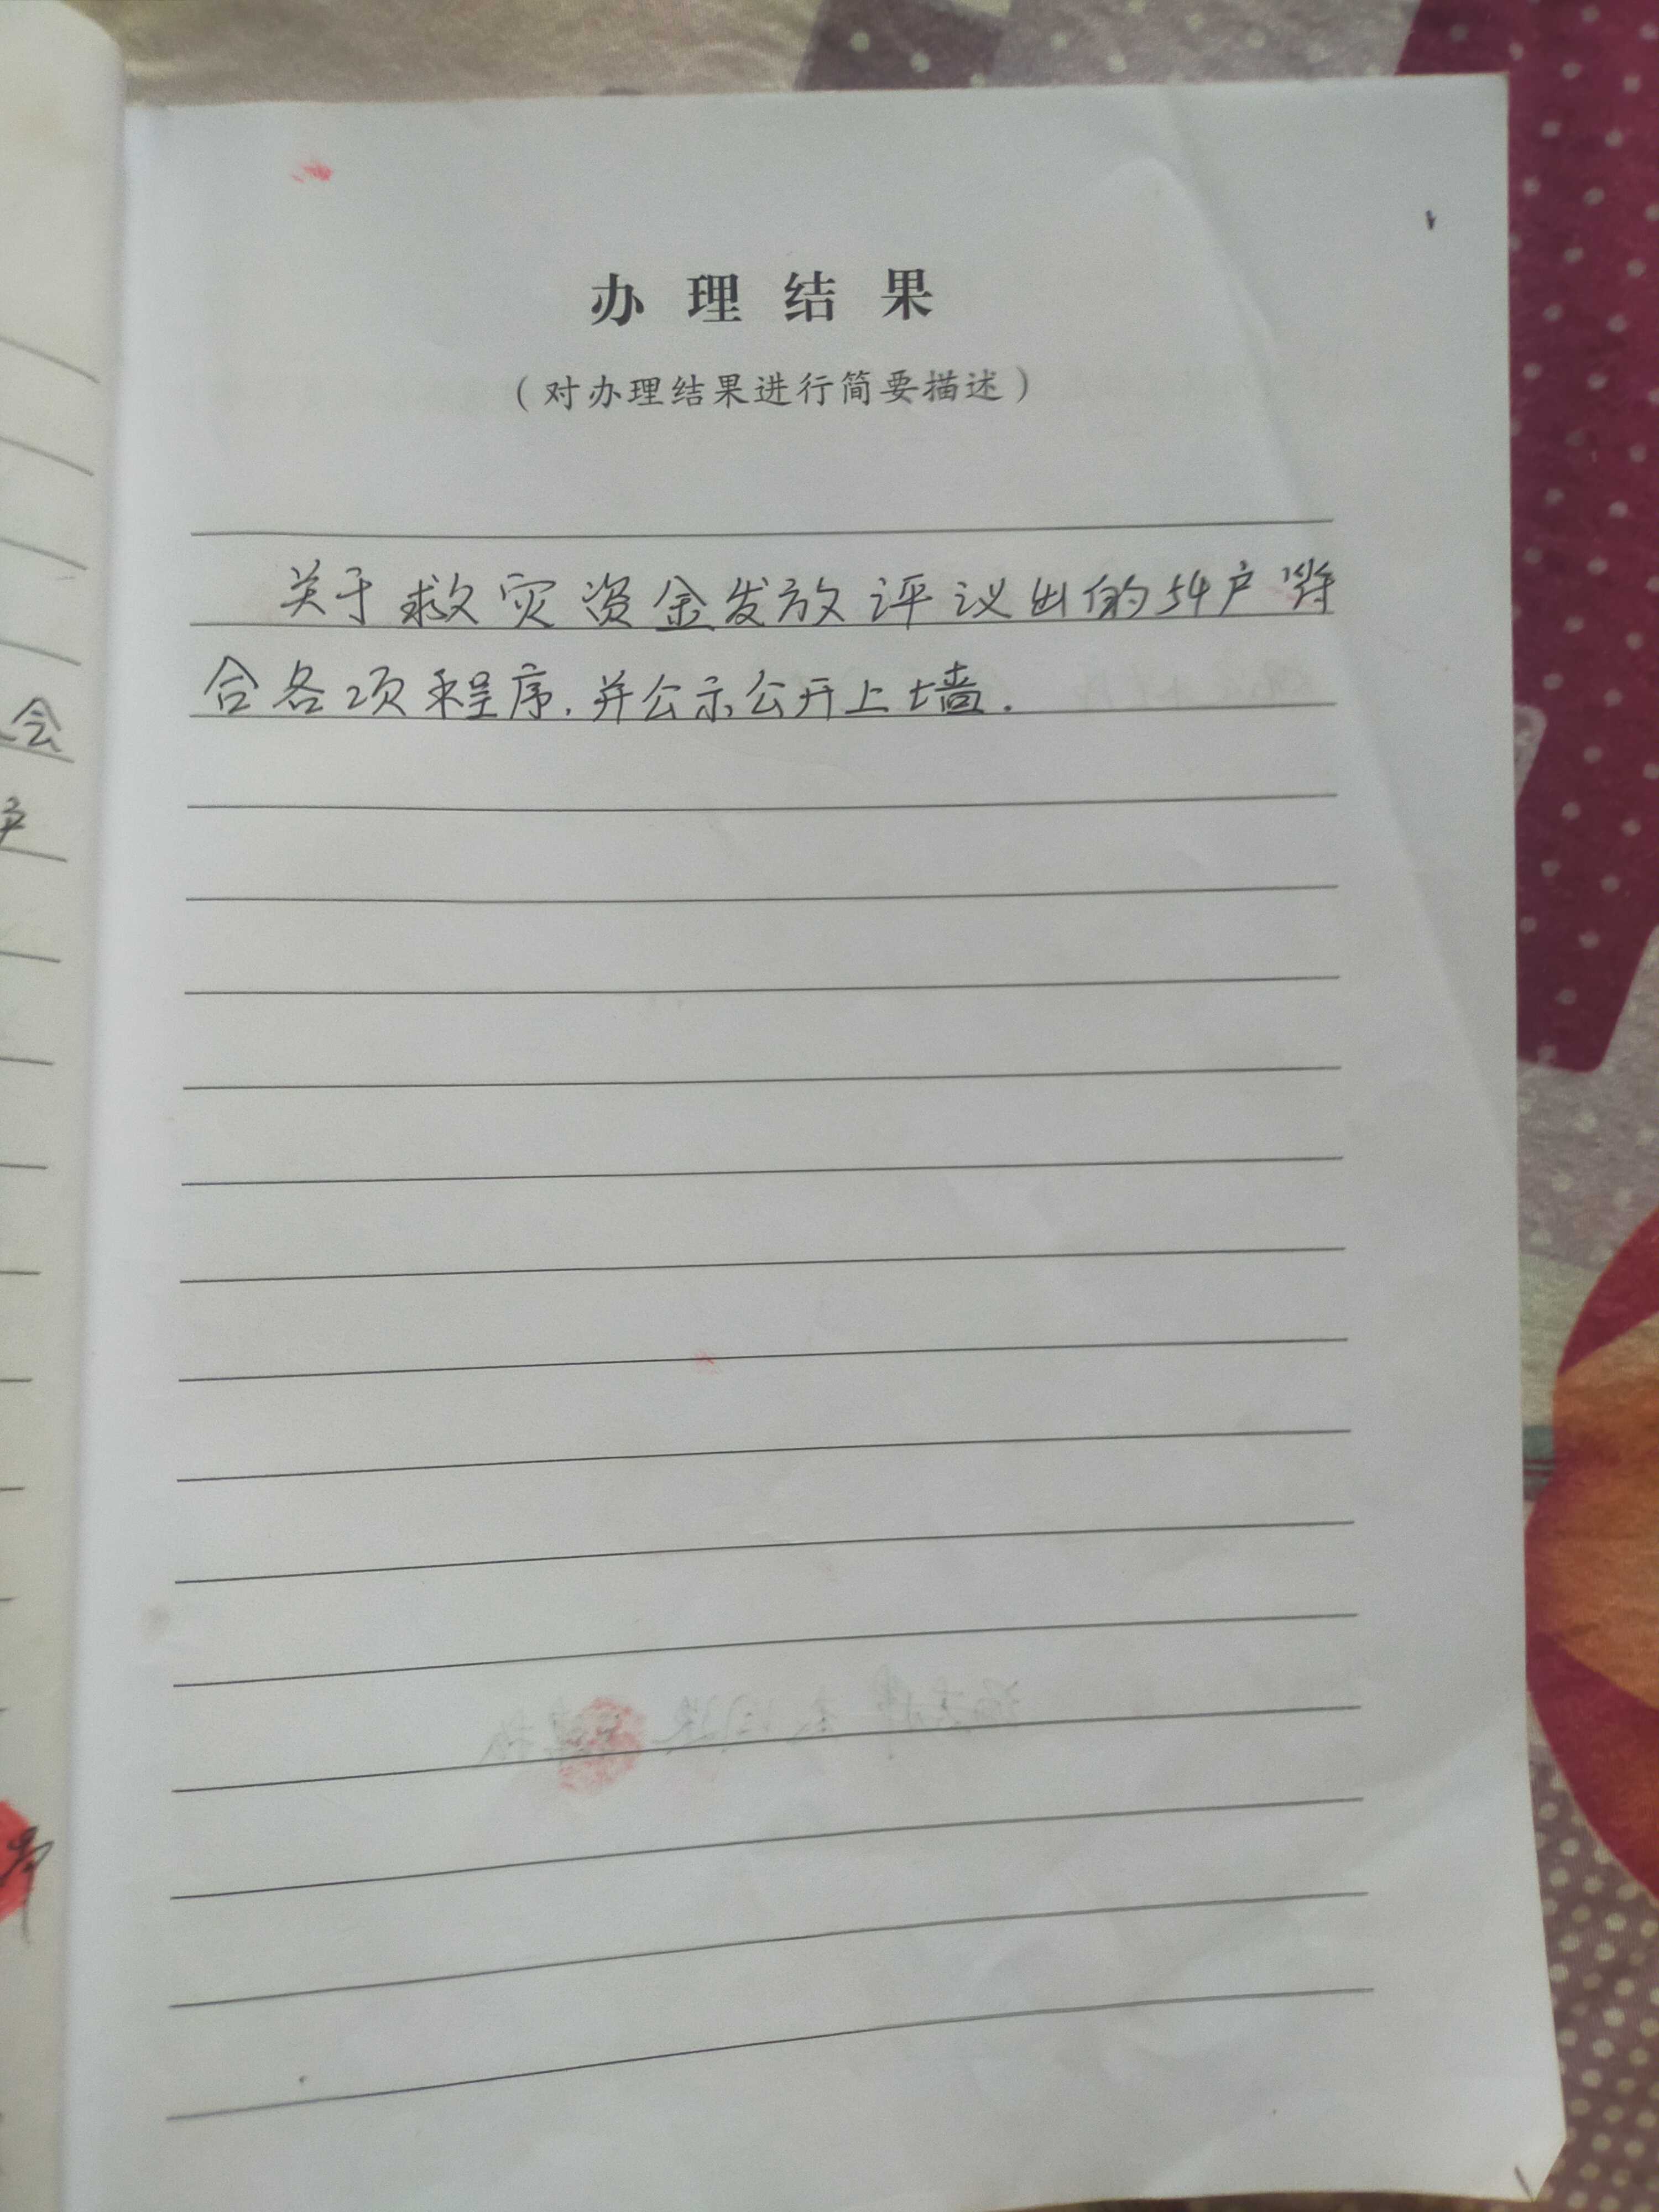 办理结果
（对办理结果进行简要描述）
关于救灾资金发放评议出的54户符
合各项程序.并公示公开上墙.
会
户